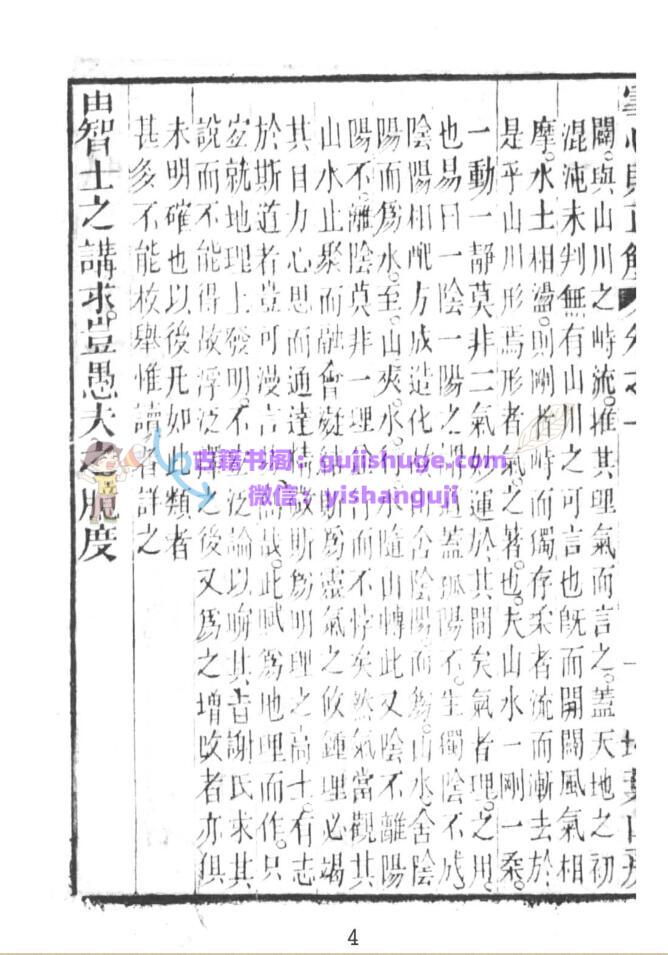 雪心賦正解
闢與山川之峙流推其理氣而言之蓋天地之初
混沌未判無有山川之可言也既而開闢風氣相
摩水土相盪則剛者峙而獨存柔者流而漸去於
是乎山川形焉形者氣之著也夫山水一剛一柔
一動一靜莫非二氣妙運於其間矣氣者理之用
也易曰一陰一陽之謂道蓋孤陽不生獨陰不成
陰陽相配方成造化故山合陰陽而爲山水舍陰
陽而爲水至山夾水行水隨山轉此又陰不離陽
陽不離陰莫非一理於中而不悖矣然氣當觀其
山水止聚而融會凝結斯爲靈氣之攸鍾理必竭
其目力心思而通達精微斯爲明理之高士有志
於斯道者豈可漫言哉此賦爲地理而作只
宜就地理上發明不泛論以喻其旨謝氏求其
說而不能得故浮泛釋之後又爲之增改者亦俱
未明確也以後凡如此類者
甚多不能枚舉惟讀者詳之
由智士之講求豈愚夫之臆度
古籍书阁:gujishuge.com
微信:yishanguji
4